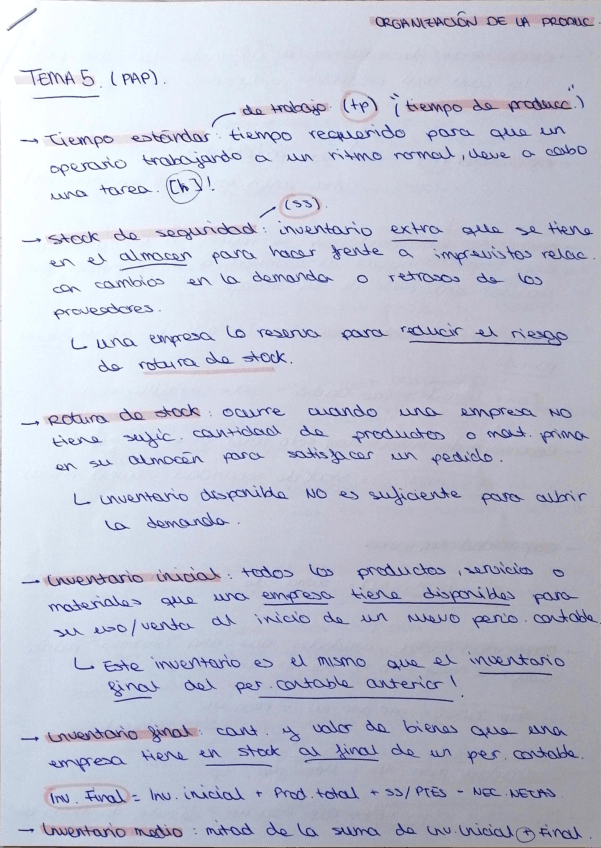 ORGANIZACIÓN DE LA PRODUC.
TEMA 5. (PAP).
de trabajo (tp) ("tiempo de producc.")
→ Tiempo estándar: tiempo requerido para que un
operario trabajando a un ritmo normal, lleve a cabo
una tarea. [h]!
(SS).
→ Stock de seguridad: inventario extra que se tiene
en el almacen para hacer frente a imprevistos relac.
con cambios en la demanda o retrasos de los
proveedores.
└ una empresa lo reserva para reducir el riesgo
de rotura de stock.
→ Rotura de stock: ocurre cuando una empresa NO
tiene sufic. cantidad de productos o mat. prima
en su almacén para satisfacer un pedido.
└ inventario disponible NO es suficiente para cubrir
la demanda.
→ Inventario inicial: todos los productos, servicios o
materiales que una empresa tiene disponibles para
su uso/venta al inicio de un nuevo perio. contable.
└ Este inventario es el mismo que el inventario
final del per. contable anterior!
→ Inventario final: cant. y valor de bienes que una
empresa tiene en stock al final de un per. contable.
Inv. Final = Inv. inicial + Prod. total + SS/PTES - NEC. NETAS.
→ Inventario medio: mitad de la suma de inv. inicial + final.